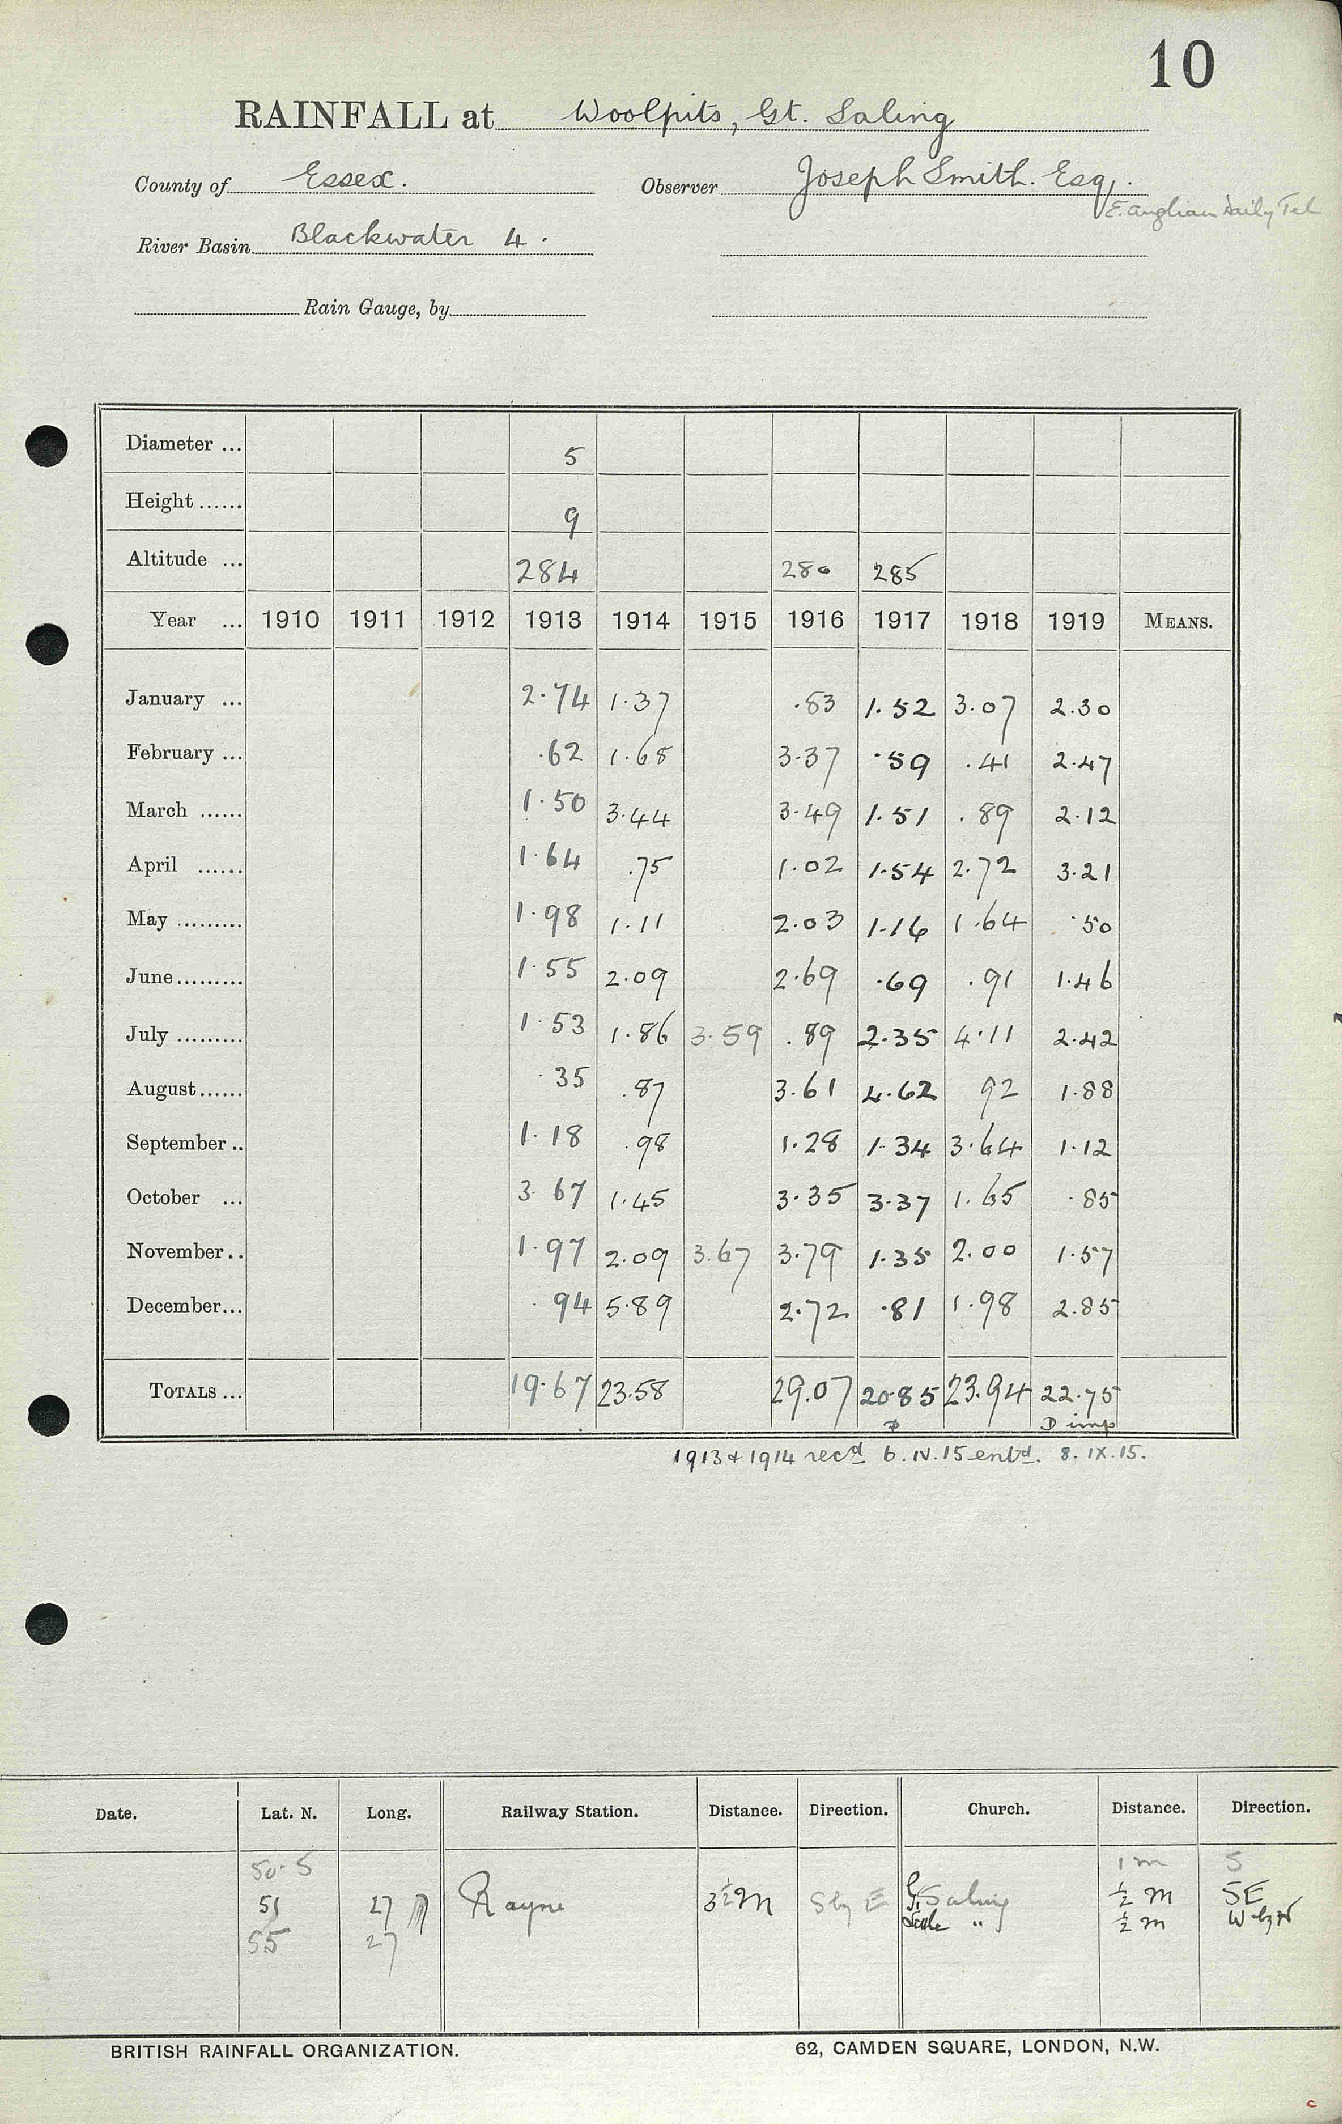 10
RAINFALL at Woolpits, Gt. Saling
County of Essex. Observer Joseph Smith. Esq.
E. Anglian Daily Tel
River Basin Blackwater 4.
Rain Gauge, by
Diameter ... 5
Height ...... 9
Altitude ... 284 280 285
Year ... 1910 1911 1912 1913 1914 1915 1916 1917 1918 1919 MEANS.
January ... 2.74 1.37 .83 1.52 3.07 2.30
February ... .62 1.68 3.37 .59 .41 2.47
March ...... 1.50 3.44 3.49 1.51 .89 2.12
April ...... 1.64 .75 1.02 1.54 2.72 3.21
May ......... 1.98 1.11 2.03 1.16 1.64 .50
June ......... 1.55 2.09 2.69 .69 .91 1.46
July ......... 1.53 1.86 3.59 .89 2.35 4.11 2.42
August ...... .35 .87 3.61 4.62 92 1.88
September .. 1.18 .98 1.28 1.34 3.64 1.12
October ... 3.67 1.45 3.35 3.37 1.65 .85
November .. 1.97 2.09 3.67 3.79 1.35 2.00 1.57
December ... .94 5.89 2.72 .81 1.98 2.85
TOTALS ... 19.67 23.58 29.07 20.85 23.94 22.75
D D imp
1913 & 1914 recd 6.IV.15 entd. 8.IX.15.
Date. Lat. N. Long. Railway Station. Distance. Direction. Church. Distance. Direction.
50.5 1 m S
51 27 Rayne 3½ m S by E Gt. Saling ½ m SE
55 27 Little " ½ m W by N
BRITISH RAINFALL ORGANIZATION. 62, CAMDEN SQUARE, LONDON, N.W.
C